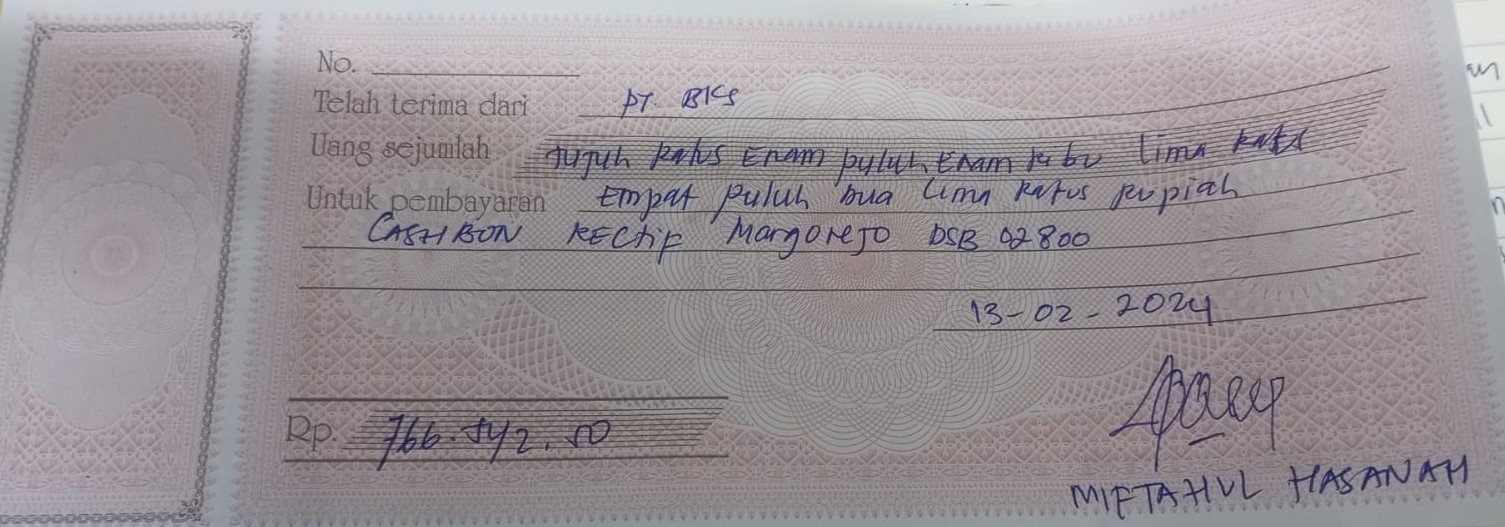 No.
Telah terima dari PT BKS
Uang sejumlah tujuh Ratus Enam puluh Enam Ribu lima Ratus
Untuk pembayaran Empat puluh Dua lima Ratus Rupiah
CASH BON RECtif Margorejo DSB 02800
13-02-2024
Rp. 766.542.50
MIFTAHUL HASANAH